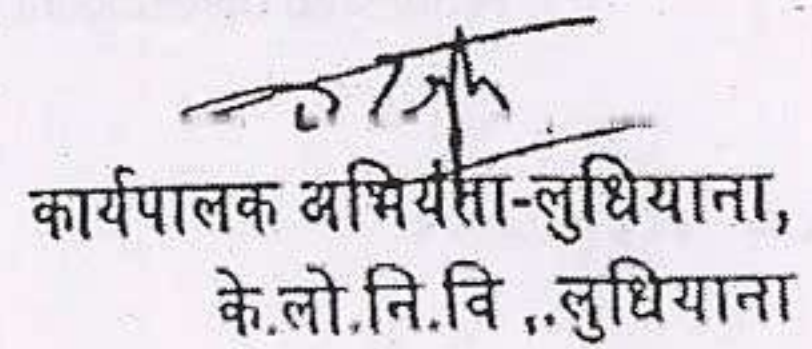 कार्यपालक अभियंता-लुधियाना,
के.लो.नि.वि ,.लुधियाना